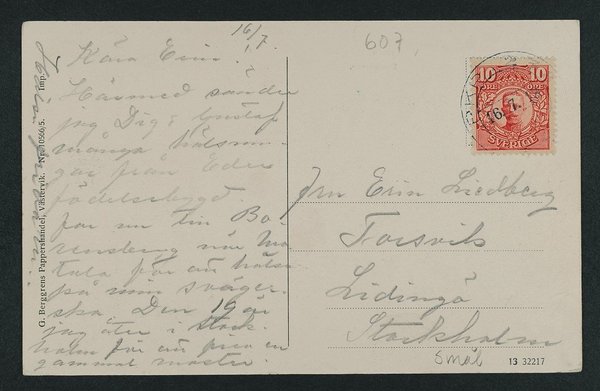 16/7
Kära Erin!
Härmed sänder
jag Dig & Gustaf
många hälsnin-
gar från Eder
födelsebygd.
far nu till Bo-
rensberg när Mo-
tala för att hälsa
på min sväger-
ska. Den 19 är
jag åter i Stock-
holm för att fira en
gammal moster.
G. Berggrens Pappershandel, Västervik. Nr. 10566/5. Imp.
607
10 10
ÖRE ÖRE
SVERIGE
16. 7.
Fru Erin Liedberg
Torsvik
Lidingö
Stockholm
Smål
13 32217